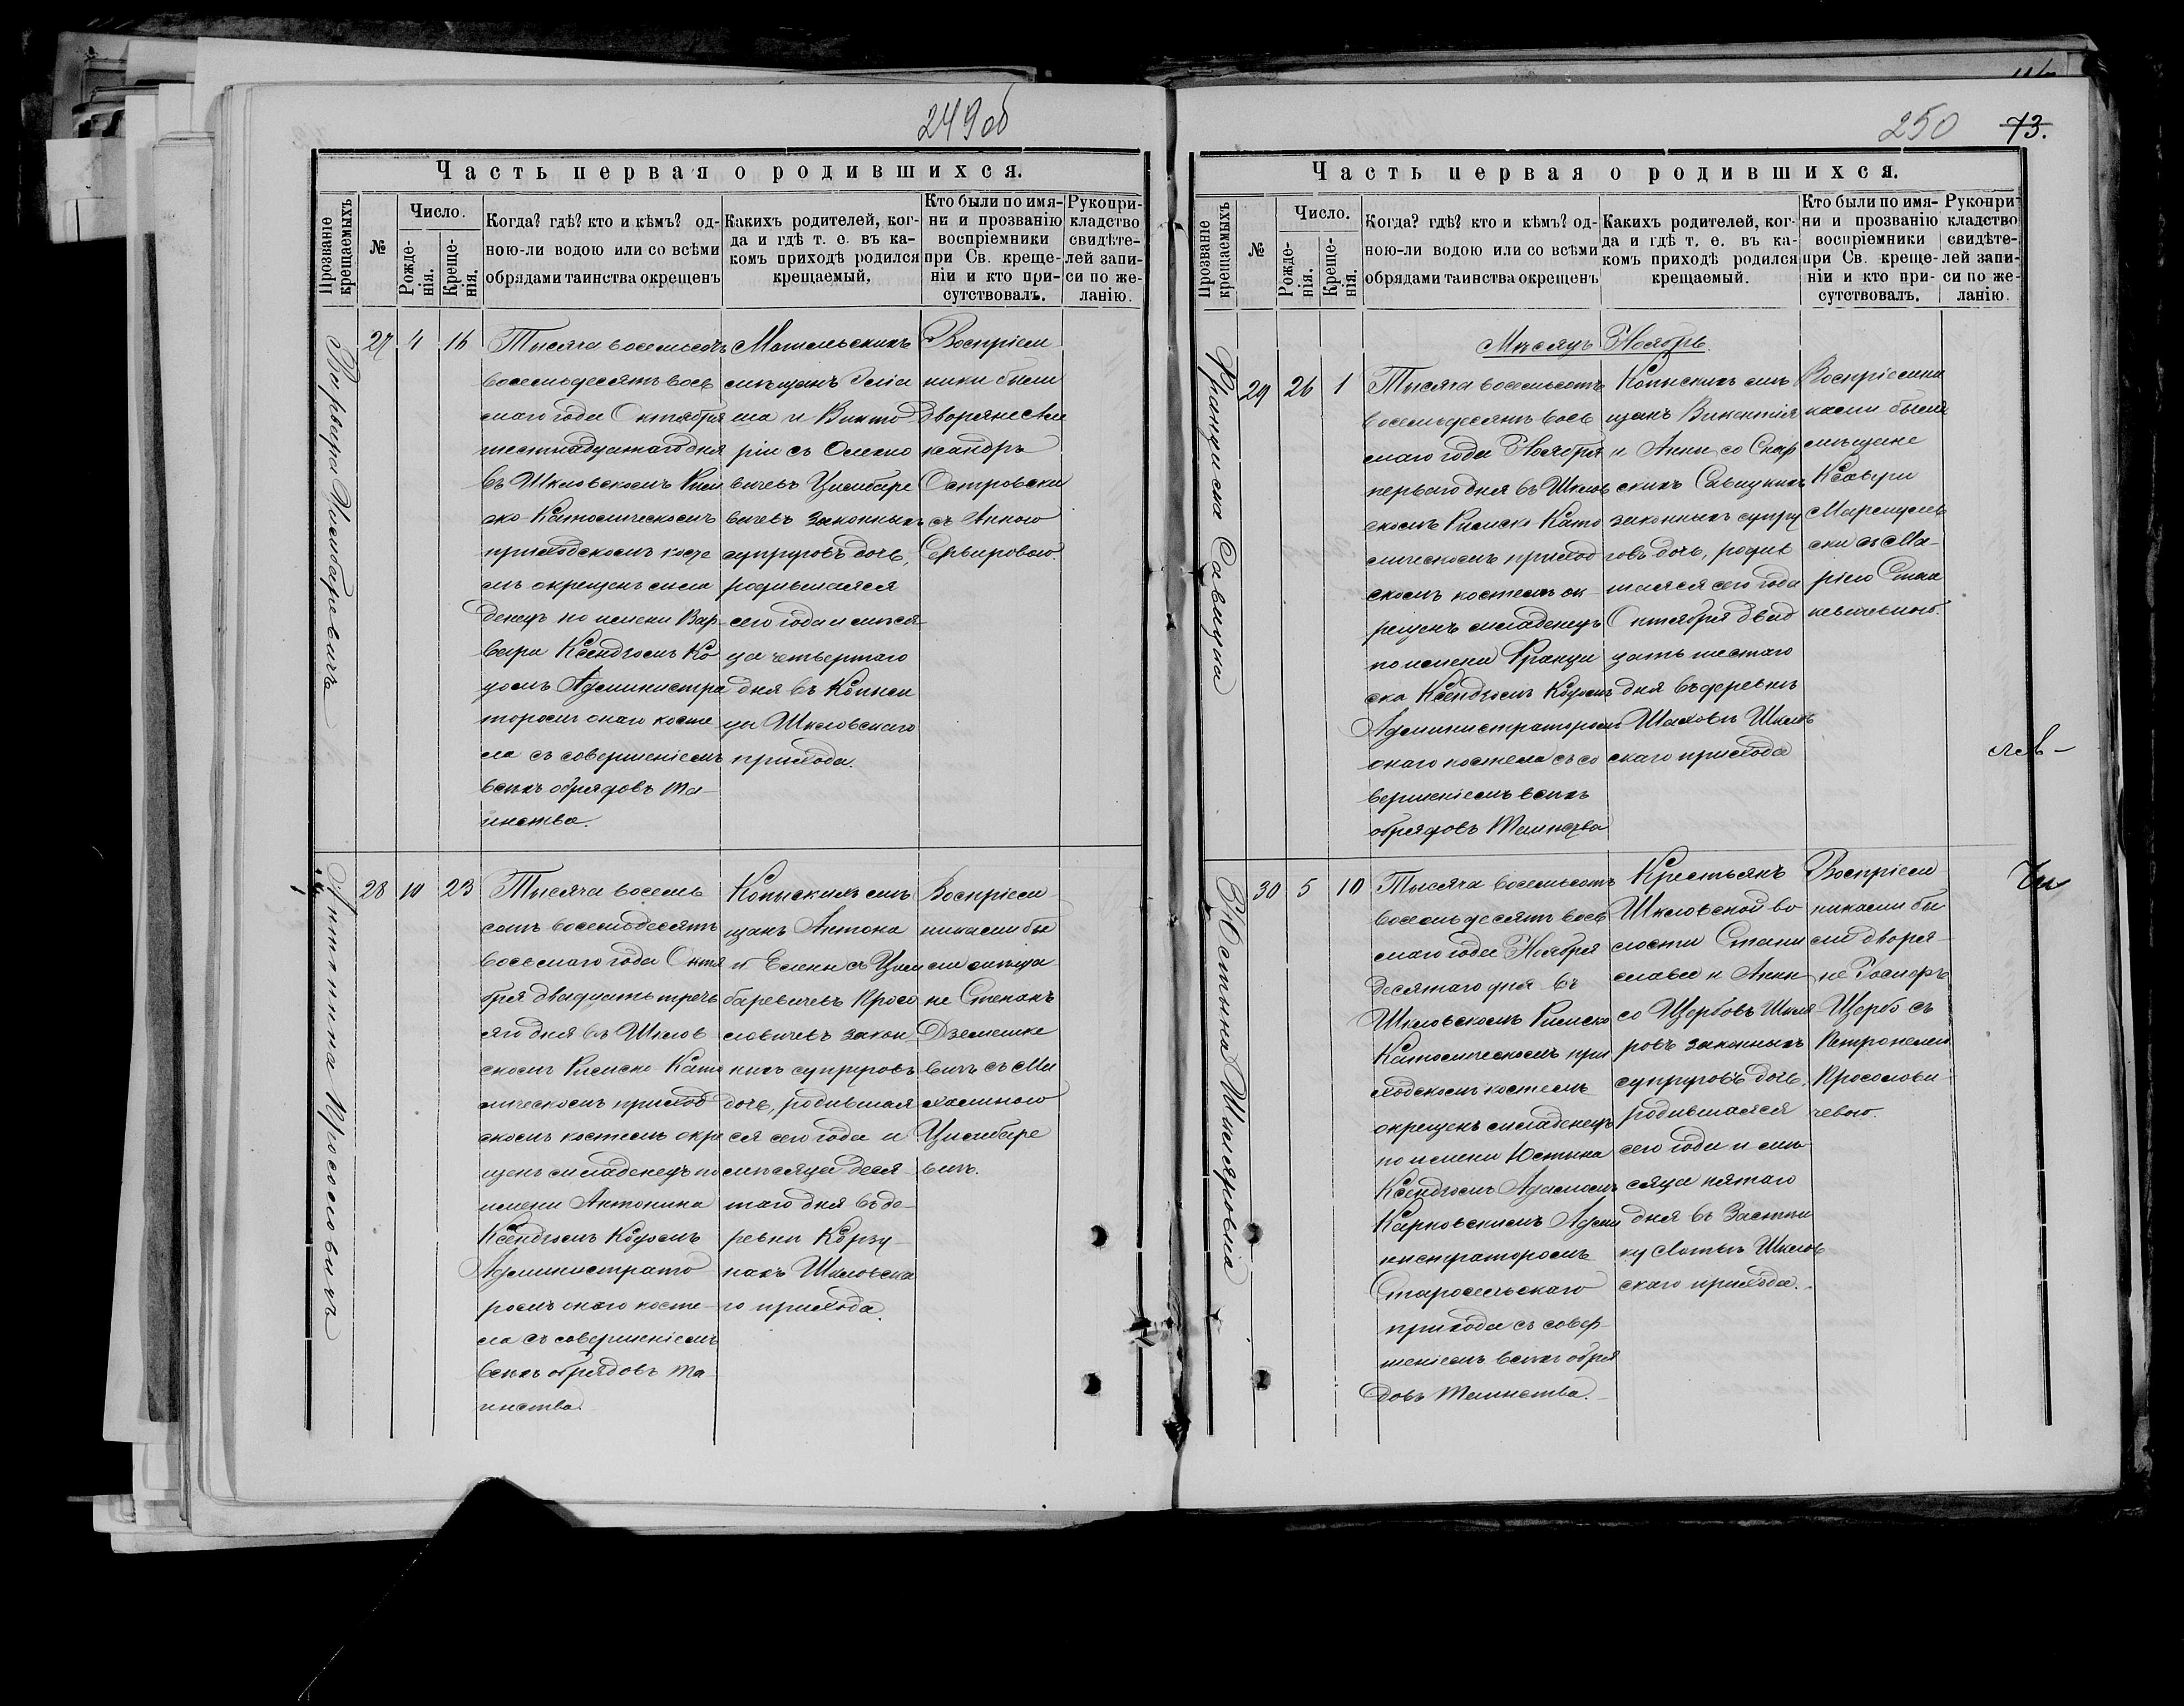 249об
Часть первая о родившихся.
Прозваніе крещаемыхъ
№
Число.
Рожде-
нія.
Креще-
нія.
Когда? гдѣ? кто и кѣмъ? од-
ною-ли водою или со всѣми
обрядами таинства окрещенъ
Какихъ родителей, ког-
да и гдѣ т. е. въ ка-
комъ приходѣ родился
крещаемый.
Кто были по имя-
ни и прозванію
воспріемники
при Св. креще-
ніи и кто при-
сутствовалъ.
Рукопри-
кладство
свидѣте-
лей запи-
си по же-
ланію.
27 4 16
Тысяча восемьсотъ
восемьдесятъ вось
маго года Октября
шестнадцатаго дня
въ Шкловскомъ Рим
ско-Католическомъ
приходскомъ косте
лѣ окрещенъ мла
денецъ по имени Вар-
вара Ксендзомъ Ко
цомъ Администра
торомъ онаго косте
ла съ совершеніемъ
всѣхъ обрядовъ та-
инства.
мѣщанъ
ма и Викто
ріи съ
вичевъ Цимбаре
вичевъ законныхъ
супруговъ дочь,
родившаяся
сего года и мѣся-
ца четвертаго
дня въ Копыси
ца Шкловскаго
прихода.
Воспріем
ники были
дворяне Але
ксандръ
Островски
съ Анною
28 10 23
Антонина Просоловичъ
Тысяча восемь
сотъ восемьдесятъ
восьмаго года Октя
бря двадцать треть
яго дня въ Шклов
скомъ Римско-Като
лическомъ приход
скомъ костелѣ окре
щенъ младенецъ по
имени Антонина
Ксендзомъ Коцомъ
Администрато
ромъ онаго косте-
ла съ совершеніемъ
всѣхъ обрядовъ та-
инства.
Копыскихъ мѣ
щанъ Антона
и Елены съ Цим
баревичевъ Просо
ловичевъ закон
ныхъ супруговъ
дочь, родившая
ся сего года и
мѣсяца деся
таго дня въ де-
ревни Корзу-
нахъ Шкловска
го прихода.
Воспріем-
никами бы
ли мѣща
не Степанъ
вичъ съ Ми
халиною
Цимбаре
вичъ.
250 73.
Часть первая о родившихся.
Прозваніе крещаемыхъ
№
Число.
Рожде-
нія.
Креще-
нія.
Когда? гдѣ? кто и кѣмъ? од-
ною-ли водою или со всѣми
обрядами таинства окрещенъ
Какихъ родителей, ког-
да и гдѣ т. е. въ ка-
комъ приходѣ родился
крещаемый.
Кто были по имя-
ни и прозванію
воспріемники
при Св. креще-
ніи и кто при-
сутствовалъ.
Рукопри-
кладство
свидѣте-
лей запи-
си по же-
ланію.
Мѣсяцъ Ноябрь.
29 26 1
Тысяча восемьсотъ
восемьдесятъ вось
маго года Ноября
перваго дня въ Шклов
скомъ Римско-Като
лическомъ приход
скомъ костелѣ ок-
рещенъ младенецъ
по имени Франци
ска Ксендзомъ Коцомъ
Администраторомъ
онаго костела съ со
вершеніемъ всѣхъ
обрядовъ Таинства
Копыскихъ мѣ
щанъ Викентія
и Анны со
скихъ Савицкихъ
законныхъ супру
говъ дочь, родив
шаяся сего года
Октября двад
цать шестаго
дня въ деревнѣ
Шклов
скаго прихода
Воспріемни
ками были
мѣщане
Ксавери
ски съ Ма-
ріею Стан
кевичевною.
30 5 10
Тысяча восемьсотъ
восемьдесятъ вось
маго года Ноября
десятаго дня въ
Шкловскомъ Римско
Католическомъ при
ходскомъ костелѣ
окрещенъ младенецъ
по имени Юстына
Ксендзомъ Адамомъ
Карповскимъ Адми
нистраторомъ
Старосельскаго
прихода съ совер-
шеніемъ всѣхъ обря
довъ Таинства.
Крестьянъ
Шкловской во
лости Стани
слава и Анны
со Щербовъ Шкля
ровъ законныхъ
супруговъ дочь,
родившаяся
сего года и мѣ
сяца пятаго
дня въ Застѣн
ку Шклов
скаго прихода.
Воспріем
никами бы
ли дворя-
не Гаспоръ
Щербо съ
Петронелею
Просолови-
чевою.